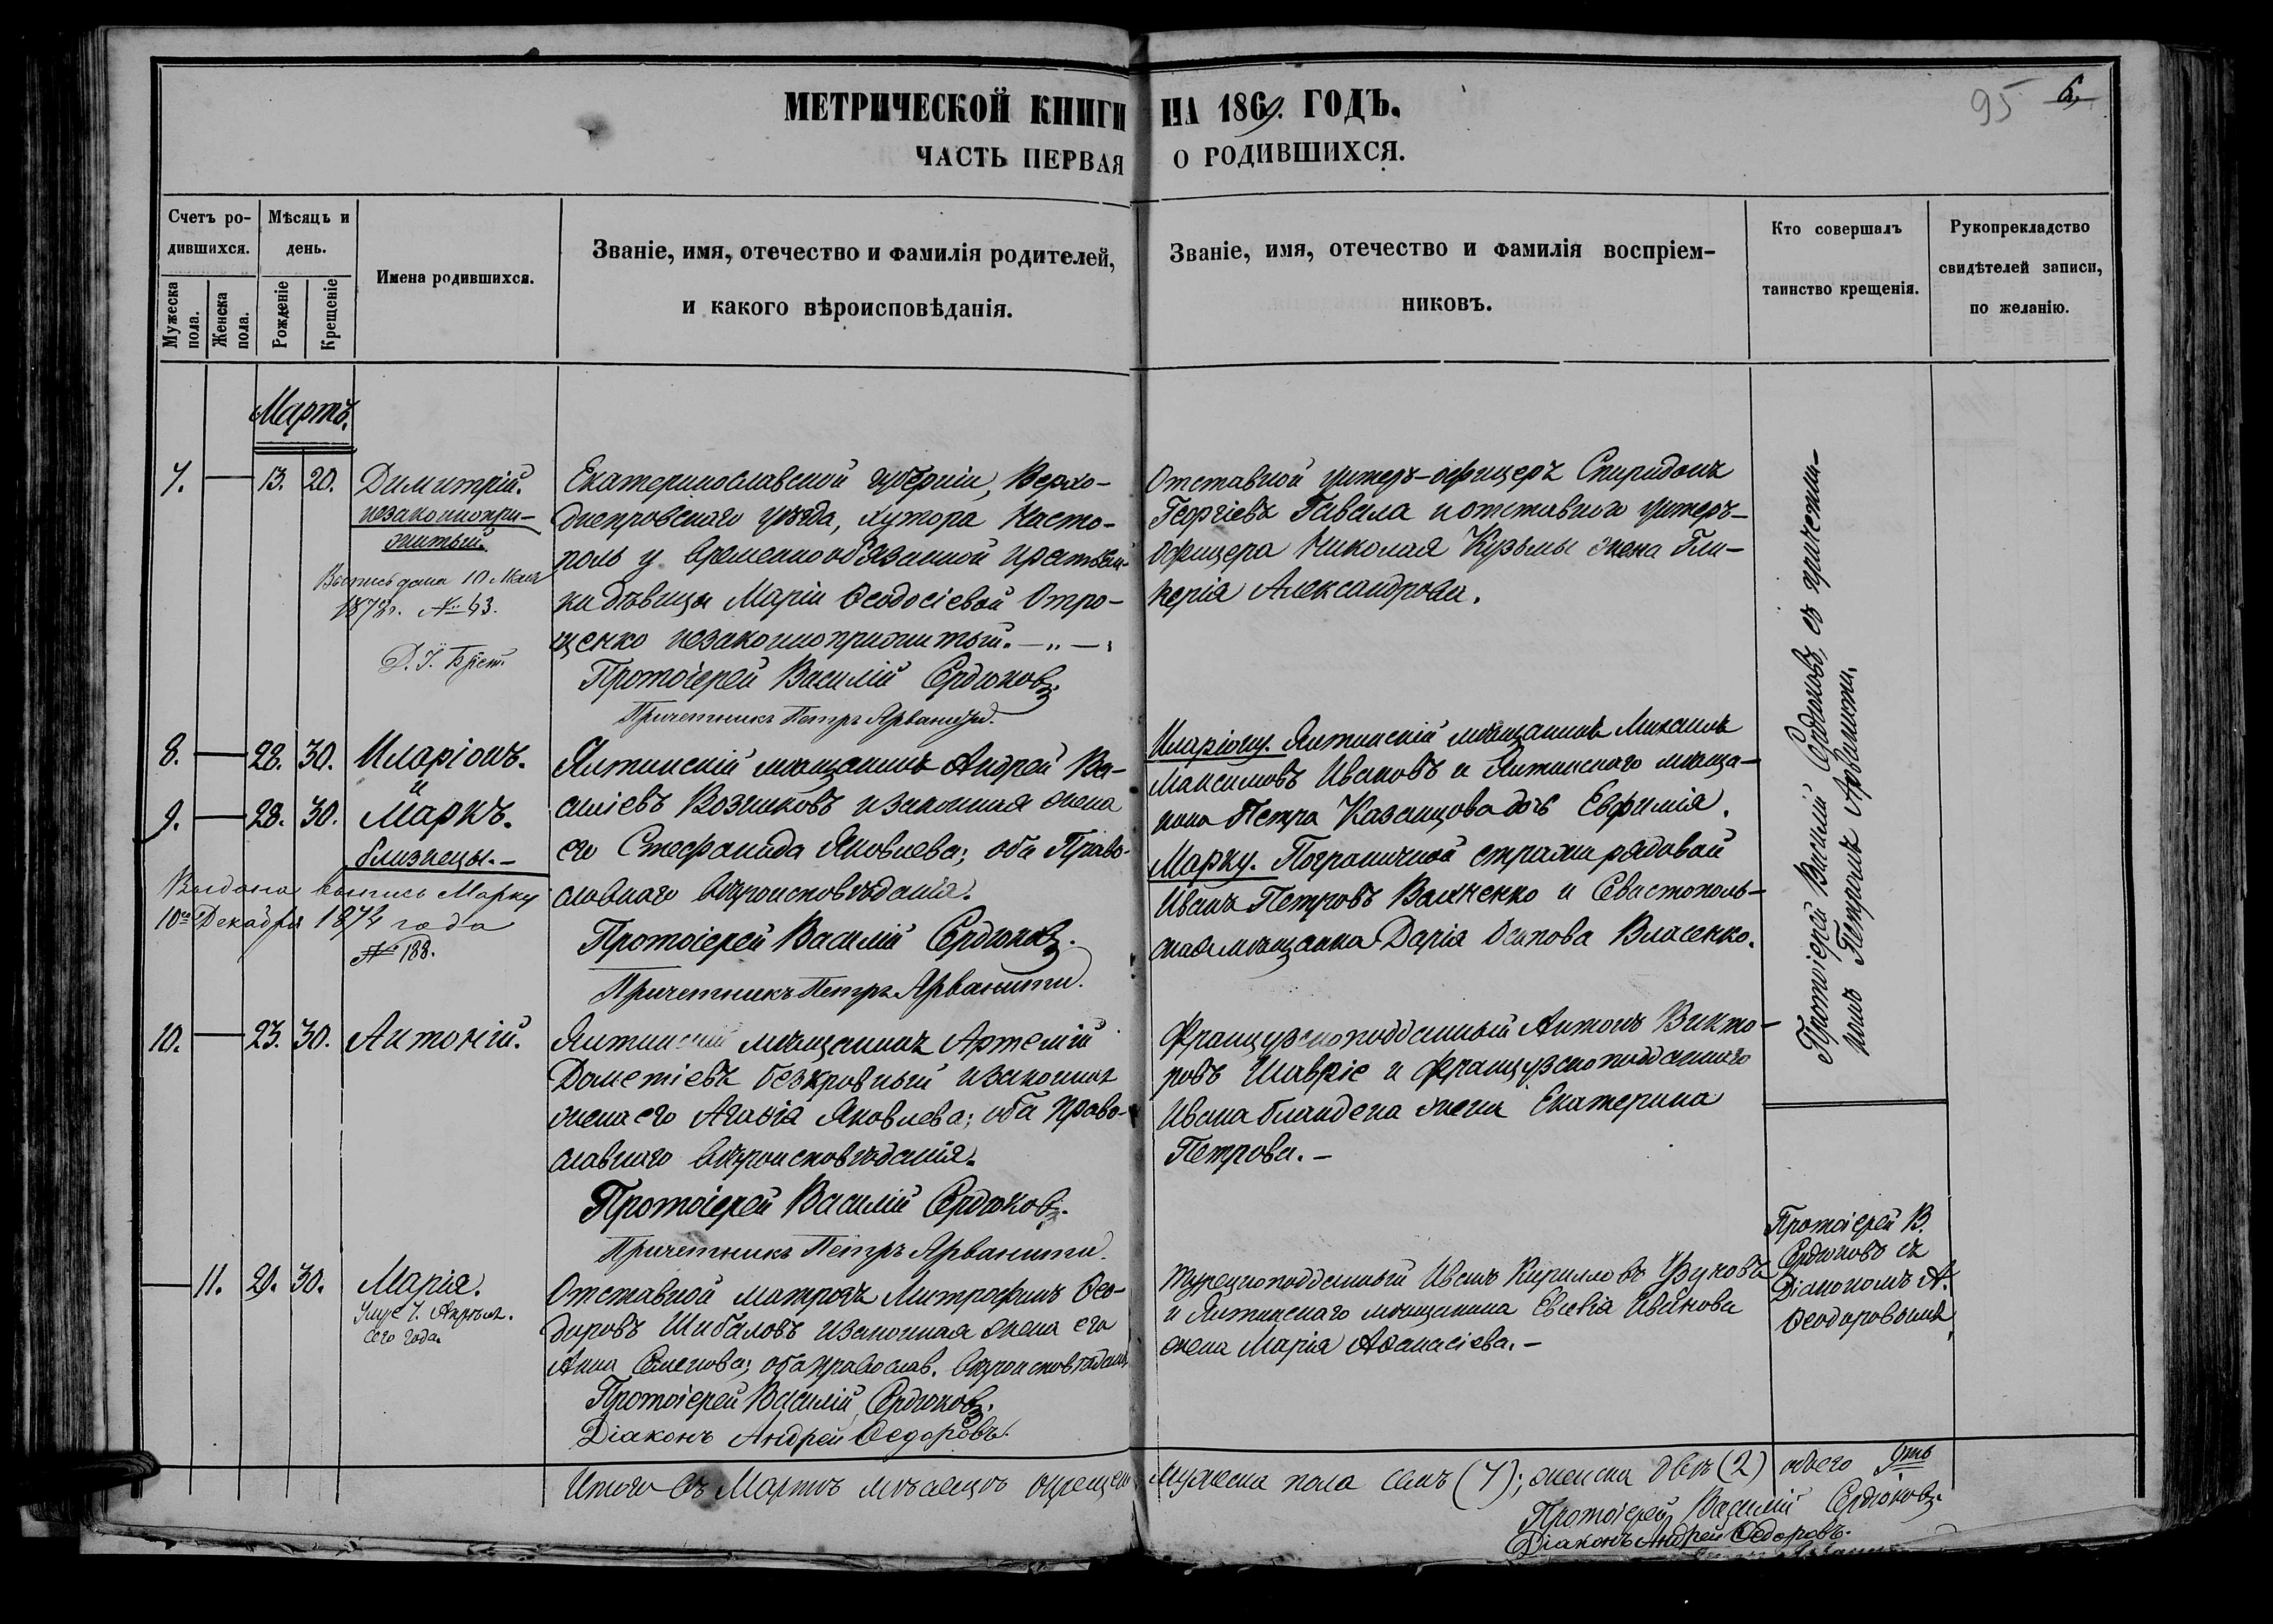 МЕТРИЧЕСКОЙ КНИГИ НА 1869. ГОДЪ.
95 6.
ЧАСТЬ ПЕРВАЯ О РОДИВШИХСЯ.
Счетъ ро-
дившихся.
Мужеска
пола.
Женска
пола.
Мѣсяцъ и
день.
Рожденіе
Крещеніе
Имена родившихся.
Званіе, имя, отечество и фамилія родителей,
и какого вѣроисповѣданія.
Званіе, имя, отечество и фамилія воспріем-
никовъ.
Кто совершалъ
таинство крещенія.
Рукопрекладство
свидѣтелей записи,
по желанію.
Мартъ.
7. — 13. 20. Димитрій.
незаконнопри-
житый.
Выпись дана 10 Мая
187 г. № 43.
Екатеринославской губерніи, Верхо-
днепровскаго уѣзда, хутора Насто-
поль у временнообязанной крестьян-
ки дѣвицы Маріи Ѳеодосіевой Отро-
щенко незаконноприжитый. — „ —
Протоіерей Василій Сердюковъ.
Причетникъ Петръ Арванити.
Отставной унтеръ-офицеръ Спиридонъ
Георгіевъ Гавала и отставнаго унтеръ-
офицера Николая Кузьмы жена Гли-
керія Александрова.
8. — 28. 30. Иларіонъ.
и
9. — 28. 30. Маркъ.
близнецы. —
Выдана выпись Марку
10го Декабря 1874 года
№ 188.
Ялтинскій мѣщанинъ Андрей Ва-
силіевъ Возчиковъ и законная жена
его Стефанида Яковлева; оба Право-
славнаго вѣроисповѣданія.
Протоіерей Василій Сердюковъ.
Причетникъ Петръ Арванити.
Иларіону. Ялтинскій мѣщанинъ Михаилъ
Максимовъ Ивановъ и Ялтинскаго мѣща-
нина Петра Казанцова дочь Евфимія.
Марку. Пограничной стражи рядовой
Иванъ Петровъ Величенко и Севастополь-
ская мѣщанка Дарія Осипова Власенко.
Протоіерей Василій Сердюковъ, съ причетни-
комъ Петромъ Арванити.
10. — 23. 30. Антоній.
Ялтинскій мѣщанинъ Артемій
Дометіевъ Безкровный и законная
жена его Агафія Яковлева; оба Право-
славнаго вѣроисповѣданія.
Протоіерей Василій Сердюковъ.
Причетникъ Петръ Арванити.
Французскоподданный Антонъ Викто-
ровъ Шавріе и французскоподданнаго
Ивана Бландена жена Екатерина
Петрова. —
— 11. 29. 30. Марія.
Имуе 1. Апрѣля.
сего года.
Отставной матросъ Митрофанъ Ѳео-
доровъ Шибаловъ и законная жена его
Анна Семенова; оба православ. вѣроисповѣданія
Протоіерей Василій Сердюковъ.
Діаконъ Андрей Ѳедоровъ.
Турецкоподданный Иванъ Кирилловъ
и Ялтинскаго мѣщанина Евсевія Иванова
жена Марія Аѳанасіева. —
Протоіерей В.
Сердюковъ съ
Діакономъ А.
Ѳеодоровымъ
Итого въ Мартѣ мѣсяцѣ окрещено мужеска пола семь (7); женска двѣ (2) обоего 9ть
Протоіерей Василій Сердюковъ.
Діаконъ Андрей Ѳедоровъ.